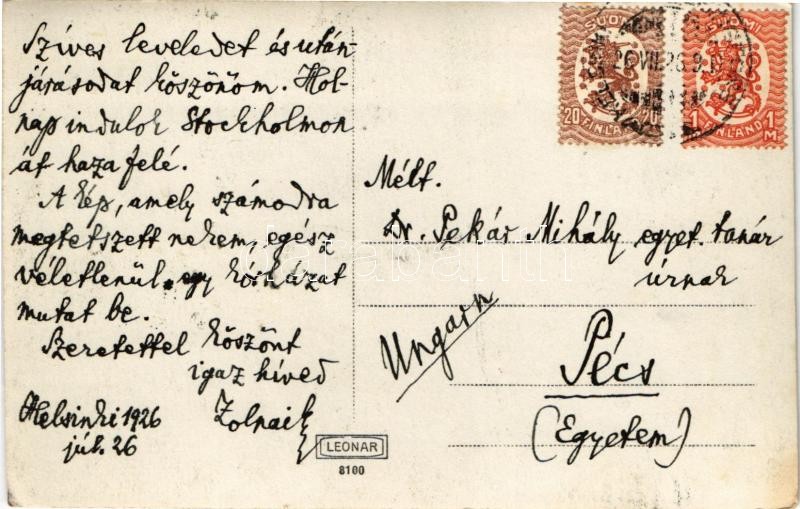 Szíves leveledet és után-
járásodat köszönöm. Hol-
nap indulok Stockholmon
át haza felé.
A kép, amely számodra
megtetszett nekem, egész
véletlenül egy kórházat
mutat be.
Szeretettel köszönt
igaz híved
Zolnai
Helsinki 1926
júl. 26
LEONAR
8100
SUOMI
20 20
FINLAND
SUOMI
1 FINLAND 1
M
26.VII.26.9
Mélt.
Dr. Pekár Mihály egyet. tanár
úrnak
Ungarn
Pécs
(Egyetem)
darabanth